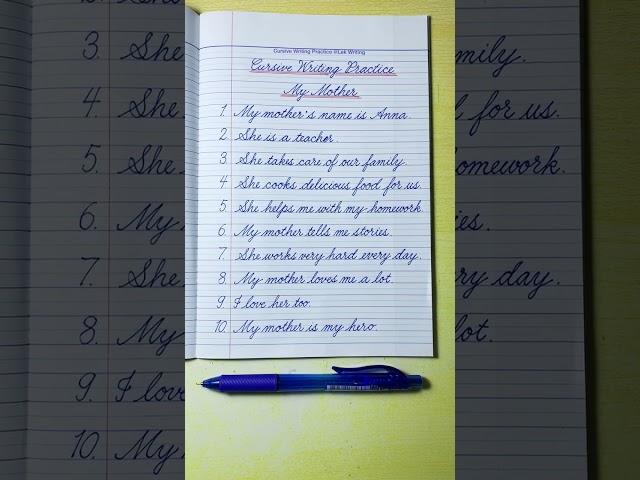 Cursive Writing Practice @Lek Writing
Cursive Writing Practice
My Mother
1. My mother's name is Anna.
2. She is a teacher.
3. She takes care of our family.
4. She cooks delicious food for us.
5. She helps me with my homework.
6. My mother tells me stories.
7. She works very hard every day.
8. My mother loves me a lot.
9. I love her too.
10. My mother is my hero.